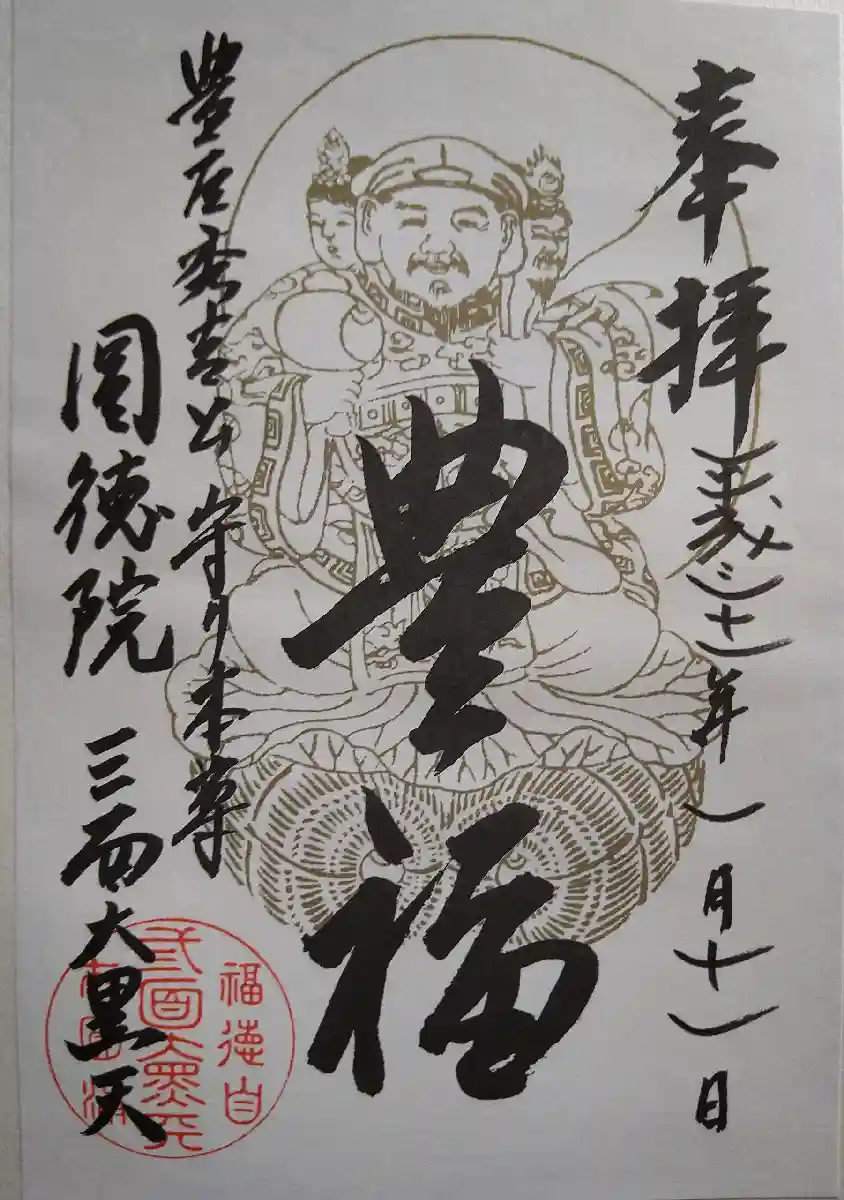 奉拝
平成三十一年一月十一日
豊福
豊臣秀吉公 守り本尊
圓徳院 三面大黒天
福徳自
弎面大黒天
在圓満